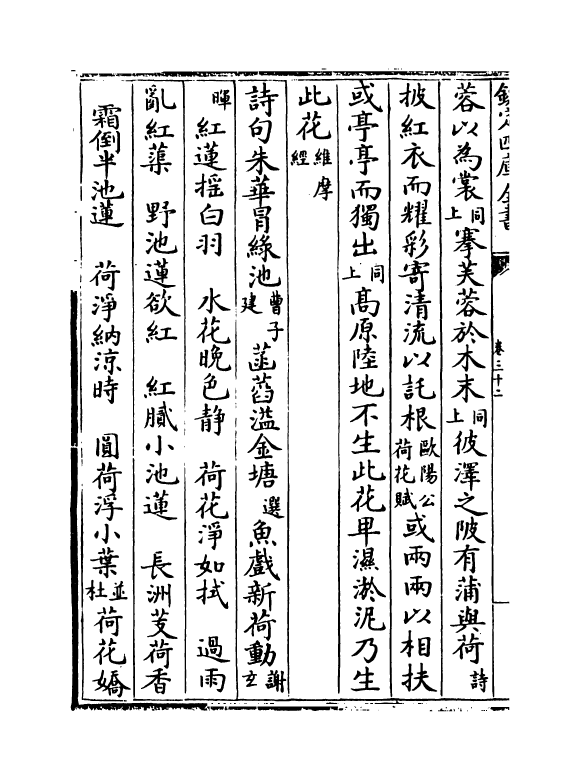 欽定四庫全書
卷三十二
蓉以為裳同上搴芙蓉於木末同上彼澤之陂有蒲與荷詩
披紅衣而耀彩寄清流以託根歐陽公荷花賦或兩兩以相扶
或亭亭而獨出同上高原陸地不生此花卑濕淤泥乃生
此花維摩經
詩句朱華冒綠池曹子建　菡萏溢金塘選魚戲新荷動謝玄
暉紅蓮揺白羽　水花晚色静　荷花淨如拭　過雨
亂紅蕖　野池蓮欲紅　紅膩小池蓮　長洲芰荷香
霜倒半池蓮　荷淨納涼時　圓荷浮小葉並杜荷花嬌